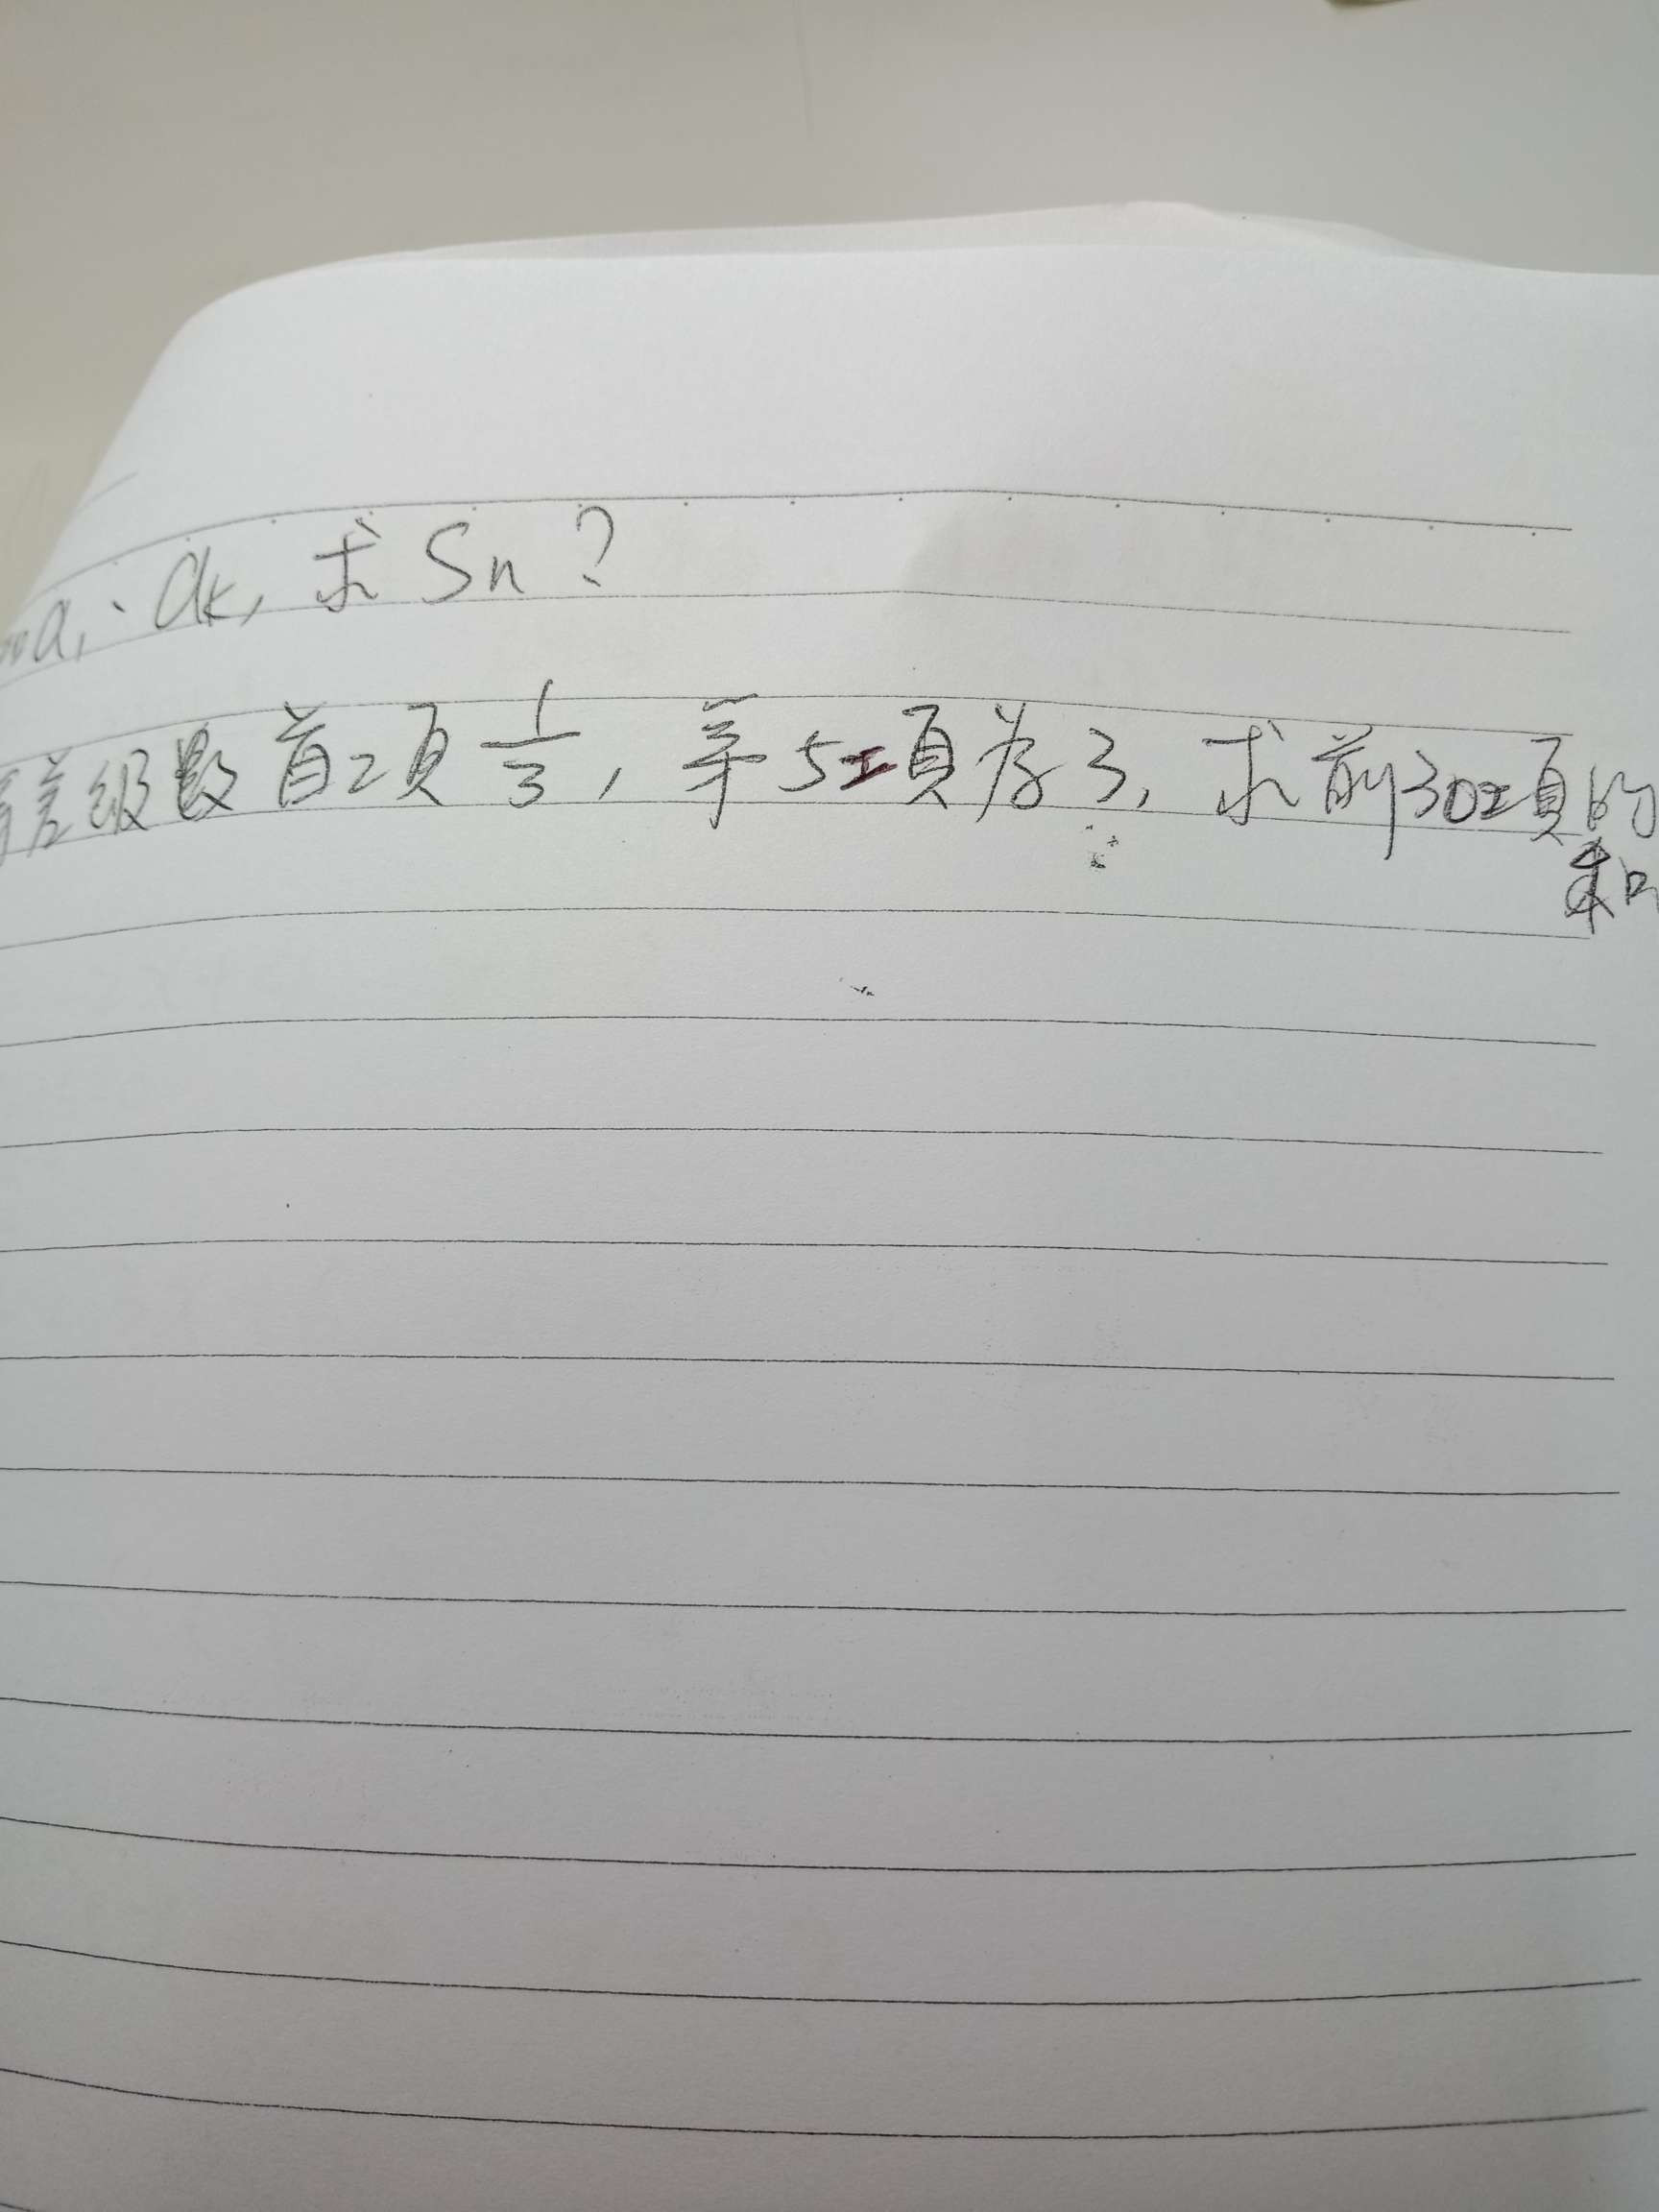 a₁、ak, 求 Sn?
差级數首項 1/3, 第5項为3, 求前30項的
和